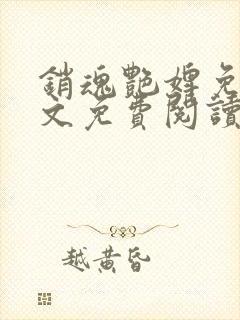 銷魂艷婢免
文免費閱讀
越黃昏